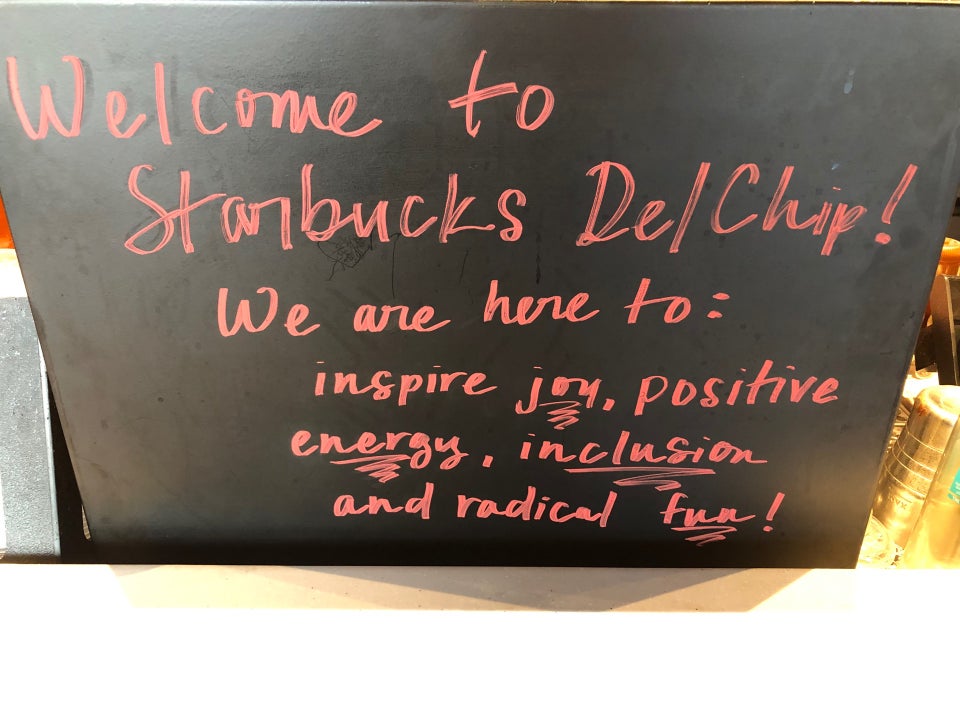 Welcome to
Starbucks Del Chip!
We are here to:
inspire joy, positive
energy, inclusion
and radical fun!